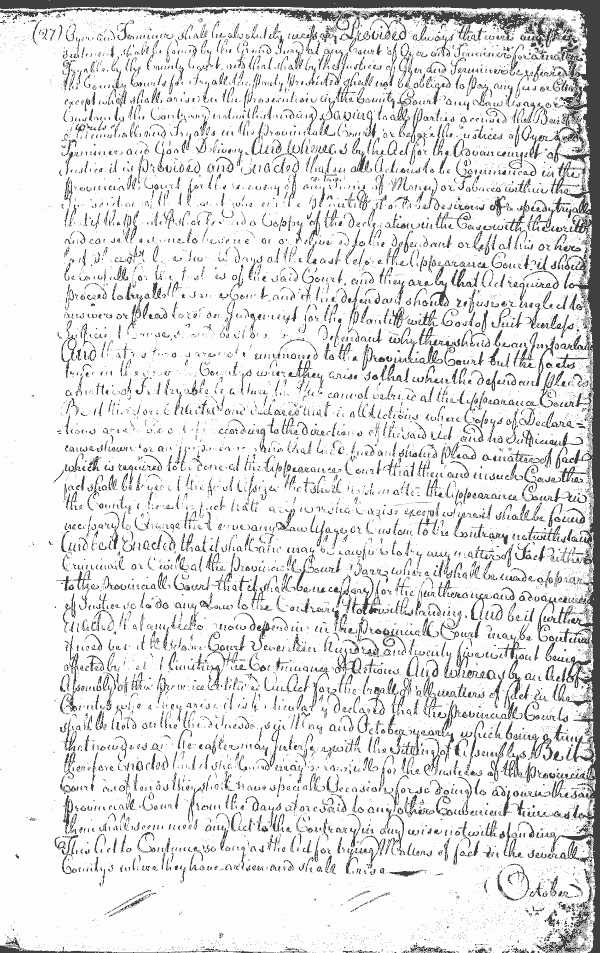 (27) Oyer and Terminer shall be absolutely necessary Provided always that were any
Indictment shall be found by the Grand Jury at any Court of Oyer and Terminer for a matter
Tryable by the County Court, and that shall by the Justices of Oyer and Terminer be referred to
the County Courts for tryall the party presented shall not be obliged to pay any fees or Charges
except what shall arise on the prosecution in the County Court any Law usage or
Custom to the Contrary notwithstanding Saving to all Parties accused the Benefit
of and Tryalls in the Provinciall Court, or before the Justices of Oyer and
Terminer and Goal Delivery. And whereas by the Act for the Advancement of
Justice it is Provided and Enacted that in all Actions to be Commenced in the
Provinciall Court for the recovery of any thing of Money or Tobacco within the
Jurisdiction of that Court where the plaintiff is desirous of a speedy tryall
that if the Plaintiff should send a Coppy of the Declaration in the Case with the writt
and cause the same to be served on or delivered to the defendant or left at his or her
days at the least before the Appearance Court, it should
be lawfull for the Justices of the said Court, and they are by that Act required to
proceed to tryall the same Court, and if the defendant should refuse or neglect to
answer or plead to give Judgement for the plaintiff with Cost of Suit unless
sufficient Cause defendant why there should be an Imparlance
And summoned to the Provinciall Court but the facts
tryed in the severall Countys where they arise so that when the defendant pleads
a matter of fact tryable by a Jury the same cannot be tryed at the Appearance Court
Be it therefore Enacted and declared that in all Actions where Copys of Declara=
=tions are according to the directions of the said Act and no sufficient
cause shown for an Imparlance and that the defendant should plead a matter of fact
which is required to be done at the Appearance Court that then and in such Case the
fact shall be tryed at the first Assizes that shall happen after the Appearance Court in
the County where that fact hath arisen or shall arise except where it shall be found
necessary to Change the Venue any Law usage or Custom to the Contrary notwithstand
And be it Enacted that it shall and may be lawfull to try any matter of Fact either
Criminal or Civil at the Provinciall Court Barr where it shall be made appear
to the Provinciall Court that it shall be necessary for the furtherance and advancement
of Justice so to do any Law to the Contrary Notwithstanding. And be it further
Enacted that any Action now depending in the Provinciall Court may be Continued
if need be till October Court Seventeen hundred and twenty five without being
affected by the Act limitting the Continuance of Actions. And whereas by an Act of
Assembly of this Province Entituled an Act for the tryall of all matters of fact in the
Countys where they arise it is particularly declared that the Provinciall Courts
shall be held on the third Tuesdays in May and October yearly, which being a time
that now does or hereafter may interfere with the Sitting of Assemblys, Be it
therefore Enacted that it shall and may be lawfull for the Justices of the Provincial
Court as often as they shall have speciall Occasion for so doing to adjourn the said
Provinciall Court from the days aforesaid to any other Convenient time as to
them shall seem meet any Act to the Contrary in any wise notwithstanding
This Act to Continue so long as the Act for trying Matters of fact in the severall
Countys where they have arisen and shall Arise
October